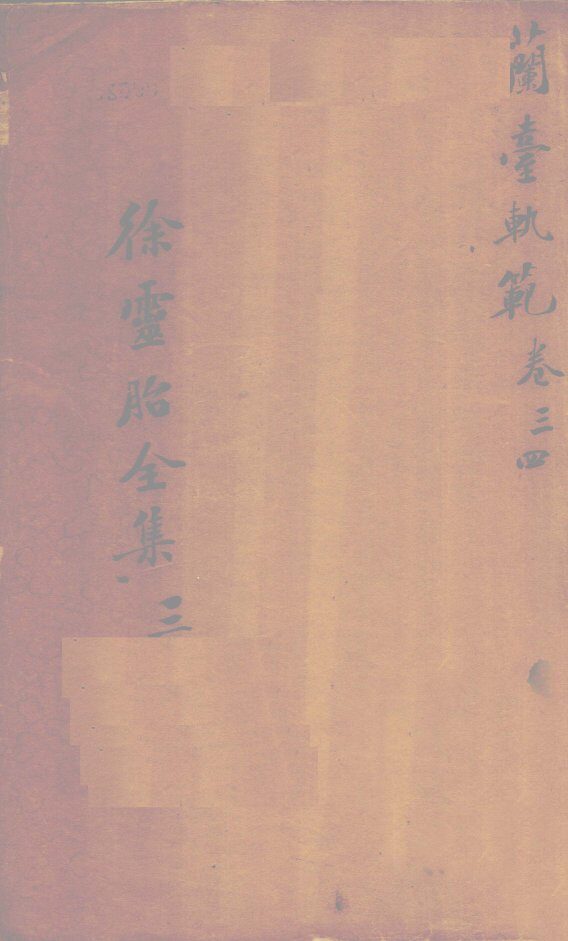 蘭臺軌範 卷三四
徐靈胎全集 三